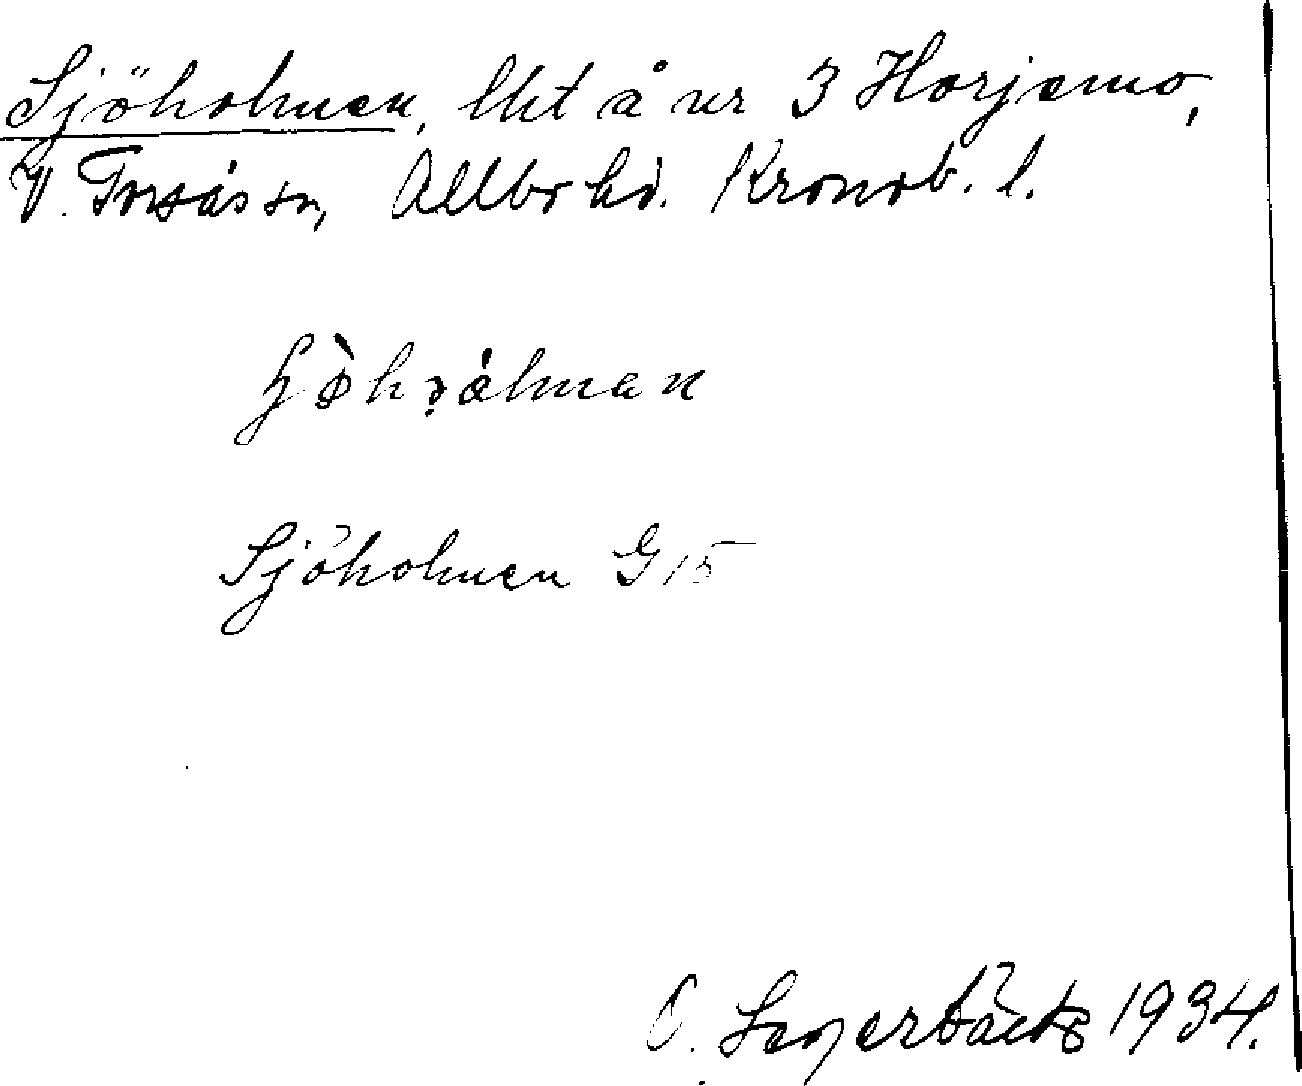 Sjöholmen, lht å nr 3 Horjemo,
V. Torsås sn, Allbo hd. Kronob. l.
Sjöholmen G 15
O. Lagerbäck 1934.